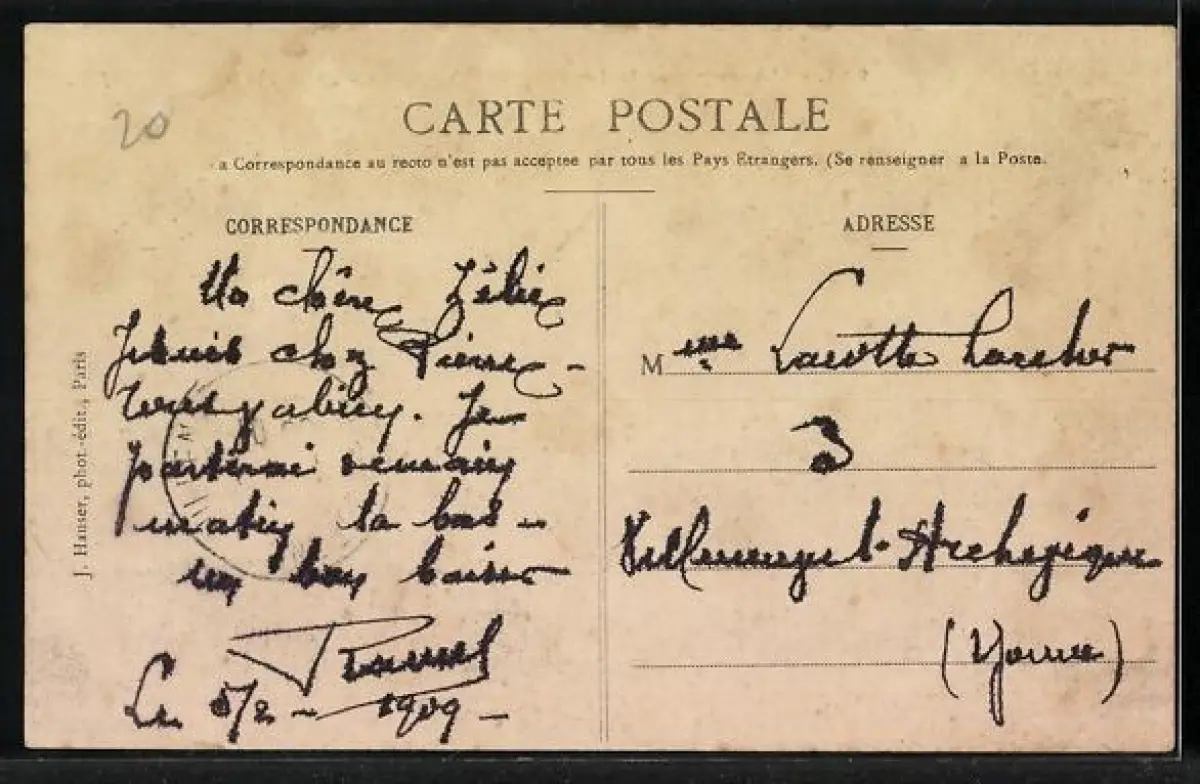 20
CARTE POSTALE
a Correspondance au recto n'est pas acceptée par tous les Pays Etrangers. (Se renseigner a la Poste.
CORRESPONDANCE
Ma chère Zélie
Je suis chez Pierre -
Je
partirai demain
matin la bas -
un bon baiser
Le 5/2 - 1909 -
J. Hauser, phot.-édit., Paris
ADRESSE
Mme
3
(Yonne)